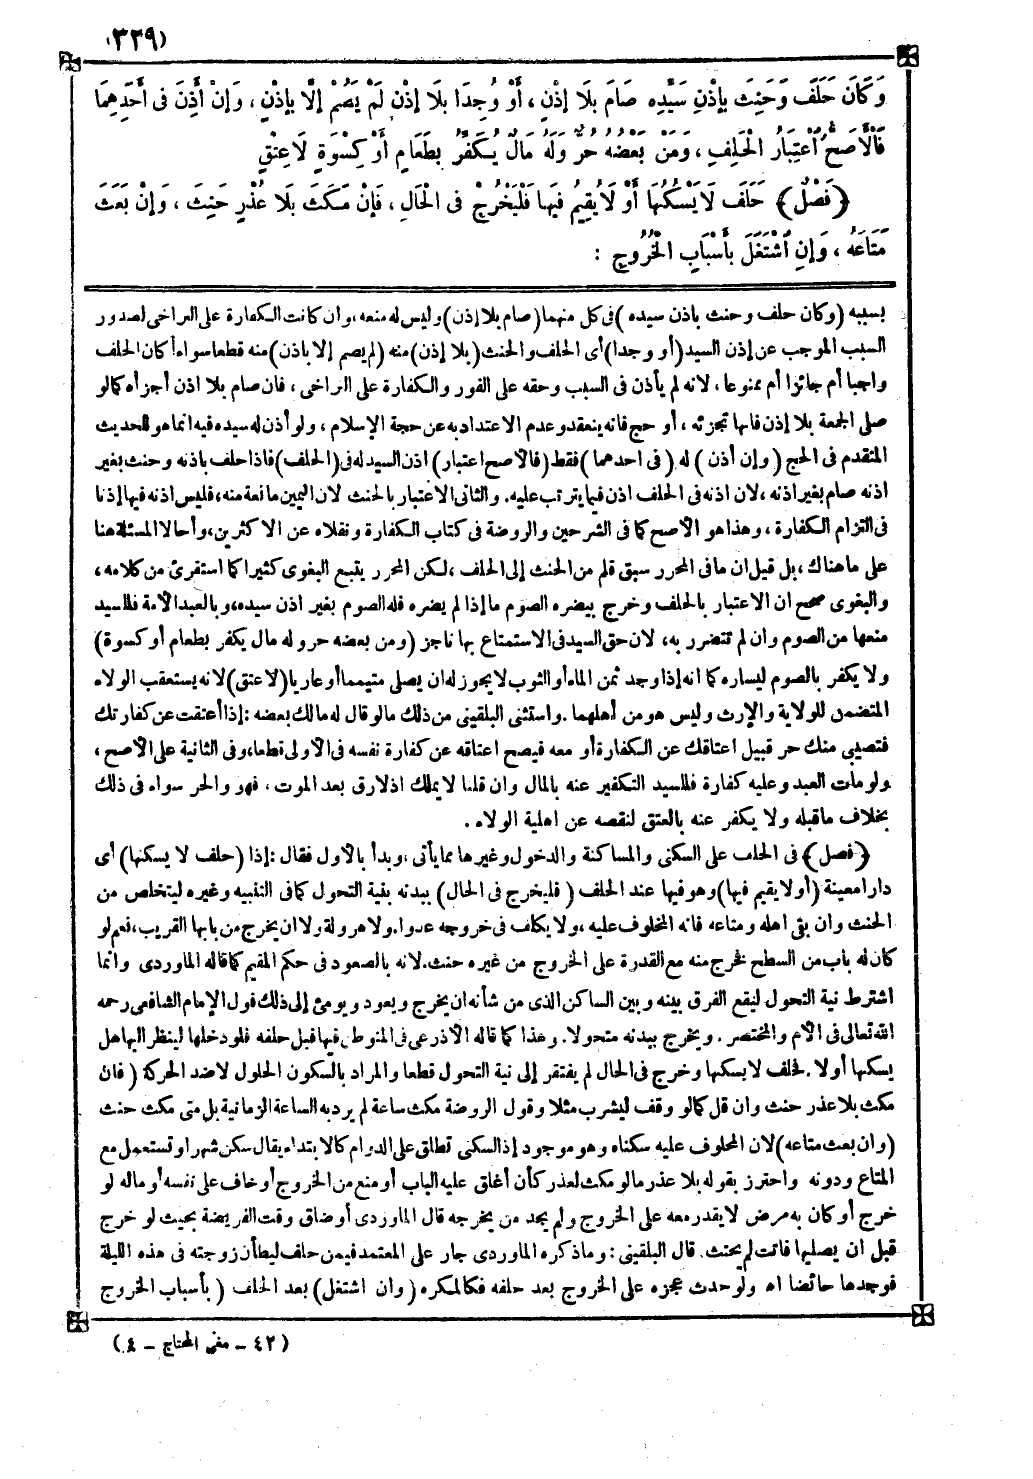 (٣٢٩)
وَكَانَ حَلَفَ وَحَنِثَ بِإِذْنِ سَيِّدِهِ صَامَ بِلَا إِذْنٍ ، أَوْ وُجِدَا بِلَا إِذْنٍ لَمْ يَصُمْ إِلَّا بِإِذْنٍ ، وَإِنْ أَذِنَ فِى أَحَدِهِمَا
فَالْأَصَحُّ اعْتِبَارُ الْحَلِفِ ، وَمَنْ بَعْضُهُ حُرٌّ وَلَهُ مَالٌ يُكَفِّرُ بِطَعَامٍ أَوْ كِسْوَةٍ لَا عِتْقٍ
﴿ فَصْلٌ ﴾ حَلَفَ لَا يَسْكُنُهَا أَوْ لَا يُقِيمُ فِيهَا فَلْيَخْرُجْ فِى الْحَالِ ، فَإِنْ مَكَثَ بِلَا عُذْرٍ حَنِثَ ، وَإِنْ بَعَثَ
مَتَاعَهُ ، وَإِنِ اشْتَغَلَ بِأَسْبَابِ الْخُرُوجِ :
بسببه (وكان حلف وحنث باذن سيده ) فى كل منهما (صام بلا إذن) وليس له منعه ، وان كانت الكفارة على التراخى لصدور
السبب الموجب عن إذن السيد (أو وجدا) أى الحلف والحنث (بلا إذن) منه (لم يصم إلا باذن) منه قطعا سواء أكان الحلف
واجبا أم جائزا أم ممنوعا ، لانه لم يأذن فى السبب وحقه على الفور والكفارة على التراخى ، فان صام بلا اذن أجزأه كمالو
صلى الجمعة بلا إذن فانها تجزئه ، أو حج فانه ينعقد وعدم الاعتداد به عن حجة الإسلام ، ولو أذن له سيده فيه انما هو للحديث
المتقدم فى الحج ( وإن أذن ) له ( فى احدهما ) فقط (فالاصح اعتبار) اذن السيد له فى (الحلف) فاذا حلف باذنه وحنث بغير
اذنه صام بغير اذنه ، لان اذنه فى الحلف اذن فيما يترتب عليه. والثانى الاعتبار بالحنث لان اليمين مانعة منه ، فليس اذنه فيها إذنا
فى التزام الكفارة ، وهذا هو الأصح كما فى الشرحين والروضة فى كتاب الكفارة ونقلاه عن الاكثرين ، وأحالا المسئلة هنا
على ما هناك ، بل قيل ان ما فى المحرر سبق قلم من الحنث إلى الحلف ، لكن المحرر يتبع البغوى كثيرا كما استقرئ من كلامه ،
والبغوى صحح ان الاعتبار بالحلف وخرج بيضره الصوم ما إذا لم يضره فله الصوم بغير اذن سيده ، وبالعبد الأمة فللسيد
منعها من الصوم وان لم تتضرر به ، لان حق السيد فى الاستمتاع بها ناجز (ومن بعضه حر وله مال يكفر بطعام أو كسوة)
ولا يكفر بالصوم ليساره كما انه إذا وجد ثمن الماء أو الثوب لا يجوز له ان يصلى متيمما أو عاريا (لا عتق) لانه يستعقب الولاء
المتضمن للولاية والإرث وليس هو من أهلهما . واستثنى البلقينى من ذلك مالو قال له مالك بعضه : إذا أعتقت عن كفارتك
فنصيبى منك حر قبيل اعتاقك عن الكفارة أو معه فيصح اعتاقه عن كفارة نفسه فى الاولى قطعا ، وفى الثانية على الأصح ،
ولو مات العبد وعليه كفارة فللسيد التكفير عنه بالمال وان قلنا لا يملك اذ لا رق بعد الموت ، فهو والحر سواء فى ذلك
بخلاف ما قبله ولا يكفر عنه بالعتق لنقصه عن اهلية الولاء .
﴿ فصل ﴾ فى الحلف على السكنى والمساكنة والدخول وغيرها مما يأتى ، وبدأ بالأول فقال : إذا (حلف لا يسكنها) أى
دارا معينة (أو لا يقيم فيها) وهو فيها عند الحلف ( فليخرج فى الحال ) ببدنه بنية التحول كما فى التنبيه وغيره ليتخلص من
الحنث وان بقى اهله ومتاعه فانه المحلوف عليه ، ولا يكلف فى خروجه عدوا . ولا هرولة ولا ان يخرج من بابها القريب ، نعم لو
كان له باب من السطح فخرج منه مع القدرة على الخروج من غيره حنث . لانه بالصعود فى حكم المقيم كما قاله الماوردى وانما
اشترط نية التحول ليقع الفرق بينه وبين الساكن الذى من شأنه ان يخرج ويعود ويومئ إلى ذلك قول الإمام الشافعى رحمه
الله تعالى فى الأم والمختصر . ويخرج ببدنه متحولا . وهذا كما قاله الأذرعى فى المتوطن فيها قبل حلفه فلو دخلها لينظر اليها هل
يسكنها أو لا . فحلف لا يسكنها وخرج فى الحال لم يفتقر إلى نية التحول قطعا والمراد بالسكون الحلول لا ضد الحركة ( فان
مكث بلا عذر حنث وان قل كمالو وقف ليشرب مثلا وقول الروضة مكث ساعة لم يرد به الساعة الزمانية بل متى مكث حنث
(وان بعث متاعه) لان المحلوف عليه سكناه وهو موجود إذ السكنى تطلق على الدوام كالابتداء يقال سكن شهرا وتستعمل مع
المتاع ودونه واحترز بقوله بلا عذر مالو مكث لعذر كأن أغلق عليه الباب أو منع من الخروج أو خاف على نفسه أو ماله لو
خرج أو كان به مرض لا يقدر معه على الخروج ولم يجد من يخرجه قال الماوردى أو ضاق وقت الفريضة بحيث لو خرج
قبل ان يصليها فاتت لم يحنث . قال البلقينى : وما ذكره الماوردى جار على المعتمد فيمن حلف ليطأن زوجته فى هذه الليلة
فوجدها حائضا اه ولو حدث عجزه على الخروج بعد حلفه فكالمكره (وان اشتغل) بعد الحلف ( بأسباب الخروج
(٤٢ ــ مغنى المحتاج ــ ٤)